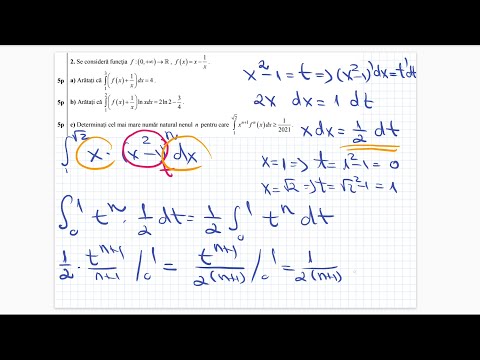 2. Se consideră funcția f : (0,+∞) → ℝ, f(x) = x − 1/x.
5p a) Arătați că ∫(f(x) + 1/x)dx = 4.
5p b) Arătați că ∫₁²(f(x) + 1/x) ln x dx = 2 ln 2 − 3/4.
5p c) Determinați cel mai mare număr natural nenul n pentru care ∫₁^√2 xⁿ⁺¹ fⁿ(x) dx ≥ 1/2021.
∫₁^√2 x · (x²−1)ⁿ dx
t
x² − 1 = t ⇒ (x²−1)'dx = t'dt
2x dx = 1 dt
x dx = 1/2 dt
x = 1 ⇒ t = 1² − 1 = 0
x = √2 ⇒ t = √2² − 1 = 1
∫₀¹ tⁿ · 1/2 dt = 1/2 ∫₀¹ tⁿ dt
1/2 · tⁿ⁺¹/(n+1) /₀¹ = tⁿ⁺¹/(2(n+1)) /₀¹ = 1/(2(n+1))